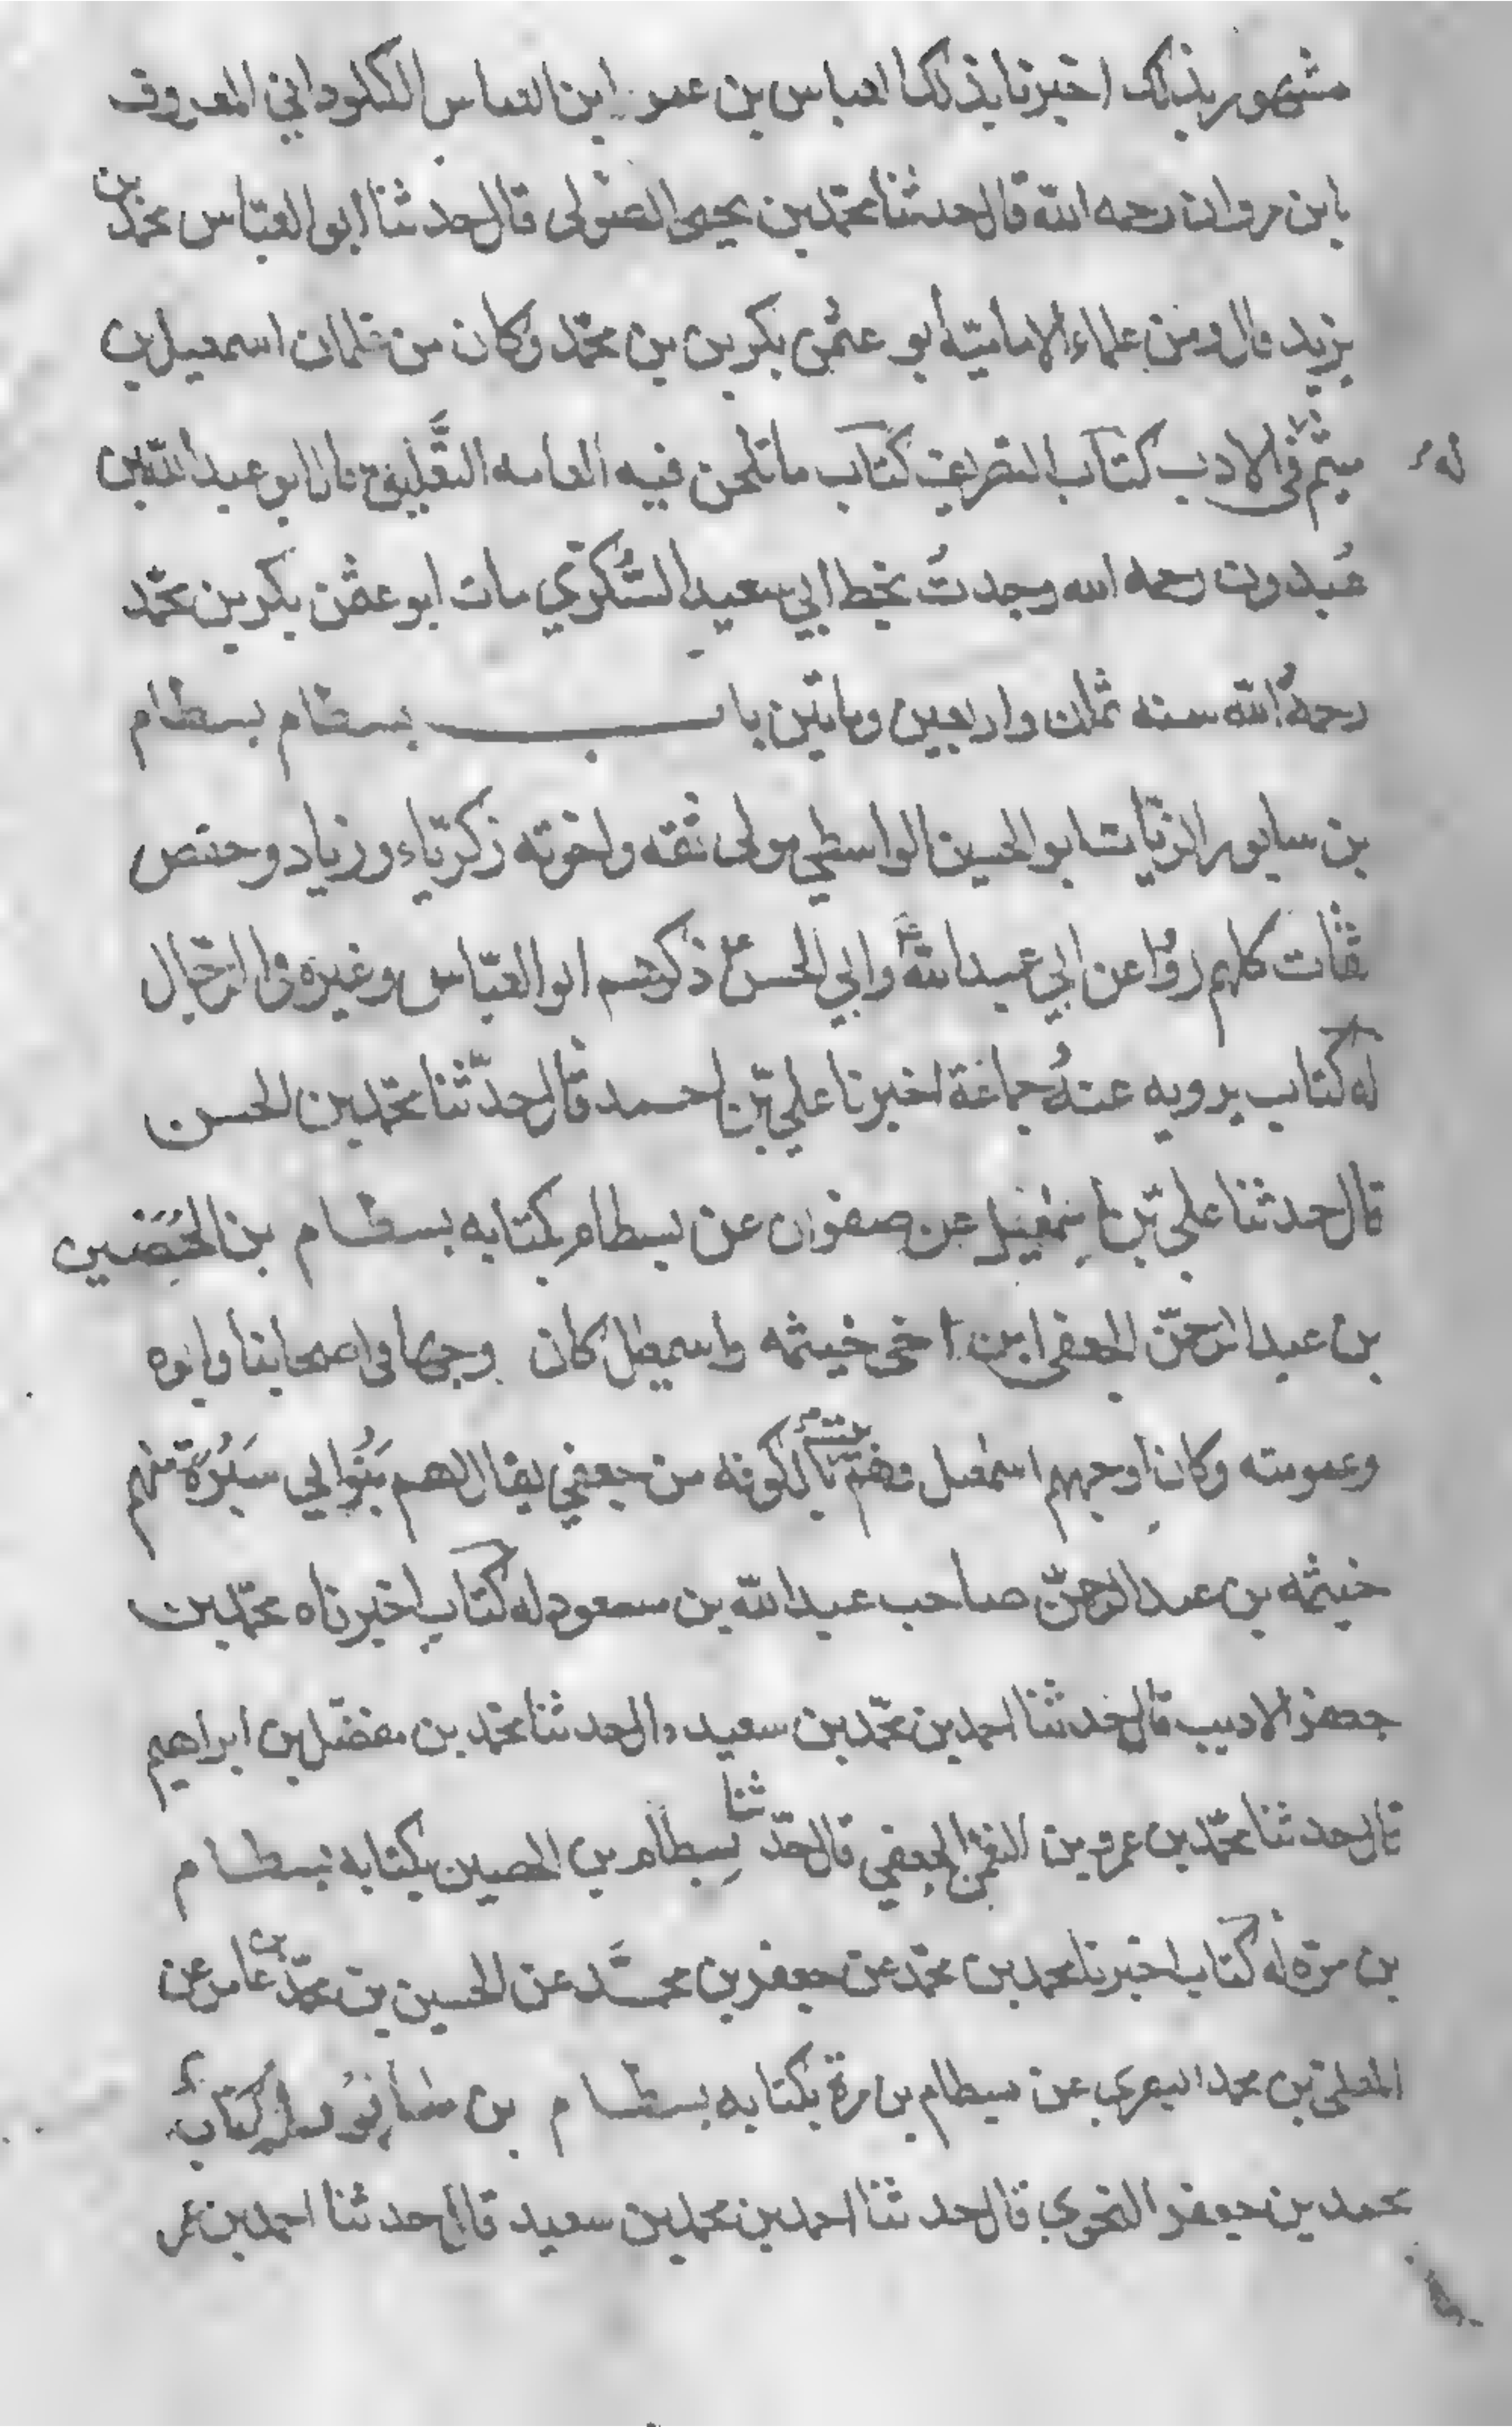 مشهور بذلك اخبرنا بذلك العباس بن عمر ابن العباس الكلوذاني المعروف
بابن مروان رحمه الله قال حدثنا محمد بن يحيى الصولى قال حدثنا ابو العباس محمد بن
يزيد قال ومن علماء الامامية ابو عثمن بكر بن محمد وكان من غلمان اسمعيل بن
ميثم له في الادب كتاب التصريف كتاب ما تلحن فيه العامه التعليق قال ابو عبد الله بن
عبدون رحمه الله وجدت بخط ابي سعيد السكري مات ابو عثمن بكر بن محمد
رحمه الله سنه ثمان واربعين وماتين باب بسطام بسطام
بن سابور الزيات ابو الحسين الواسطي مولى ثقه واخوته زكرياء وزياد وحفص
ثقات كلهم رووا عن ابي عبد الله وابي الحسن ع ذكرهم ابو العباس وغيره في الرجال
له كتاب يرويه عنه جماعة اخبرنا علي بن احمد قال حدثنا محمد بن الحسن
قال حدثنا علي بن اسمعيل عن صفوان عن بسطام بكتابه بسطام بن الحصين
بن عبد الرحمن الجعفي ابن اخي خيثمه واسمعيل كان وجها في اصحابنا وابوه
وعمومته وكان اوجههم اسمعيل وهم بيت بالكوفه من جعفي يقال لهم بنو ابي سبرة منهم
خيثمه بن عبد الرحمن صاحب عبد الله بن مسعود له كتاب اخبرناه محمد بن
جعفر الاديب قال حدثنا احمد بن محمد بن سعيد قال حدثنا محمد بن مفضل بن ابراهيم
قال حدثنا محمد بن عمرو بن النعمن الجعفي قال حدثنا بسطام بن الحصين بكتابه بسطام
بن مرة له كتاب اخبرنا محمد بن محمد عن جعفر بن محمد عن الحسين بن محمد بن عامر عن
المعلى بن محمد البصري عن بسطام بن مرة بكتابه بسطام بن سابور له كتاب
محمد بن جعفر النحوي قال حدثنا احمد بن محمد بن سعيد قال حدثنا احمد بن عمر